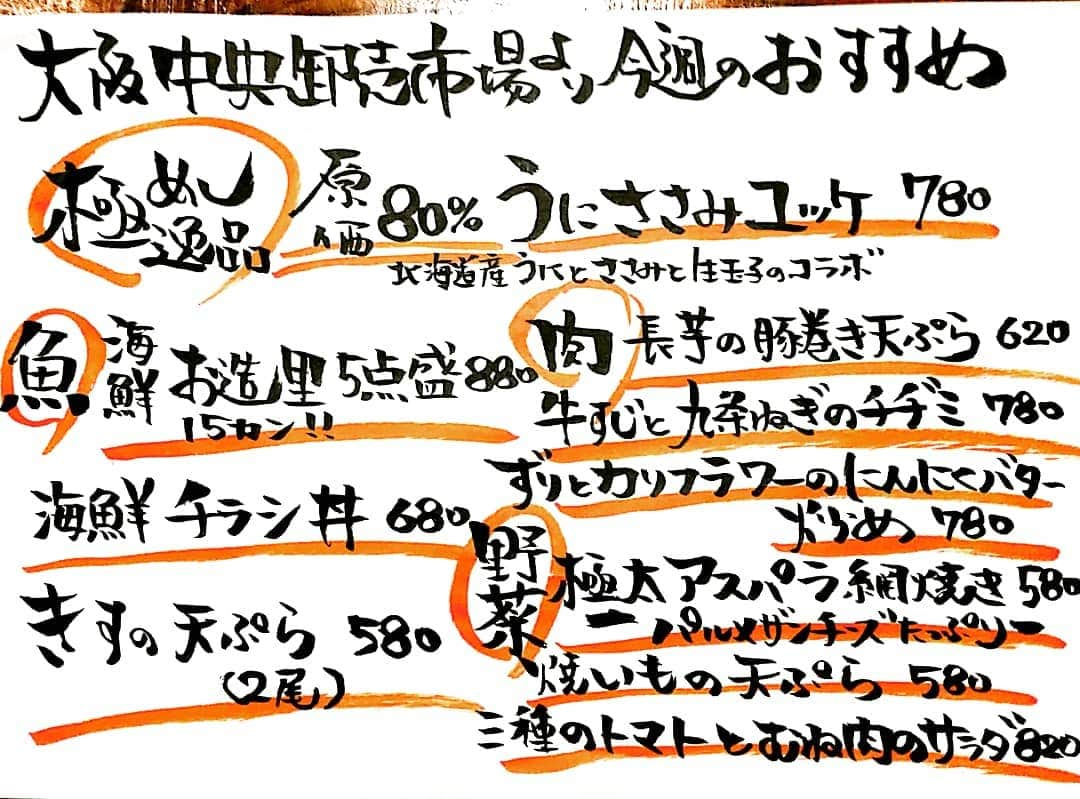 大阪中央卸売市場より今週のおすすめ
極めし逸品
原価80% うにささみユッケ 780
北海道産うにとささみと生玉子のコラボ
魚
海鮮お造里5点盛880
15カン!!
海鮮チラシ丼 680
きすの天ぷら 580
(2尾)
肉
長芋の豚巻き天ぷら 620
牛すじと九条ねぎのチヂミ 780
ずりとカリフラワーのにんにくバター
炒め 780
野菜
極太アスパラ網焼き 580
ーパルメザンチーズたっぷりー
焼いもの天ぷら 580
三種のトマトとむね肉のサラダ820